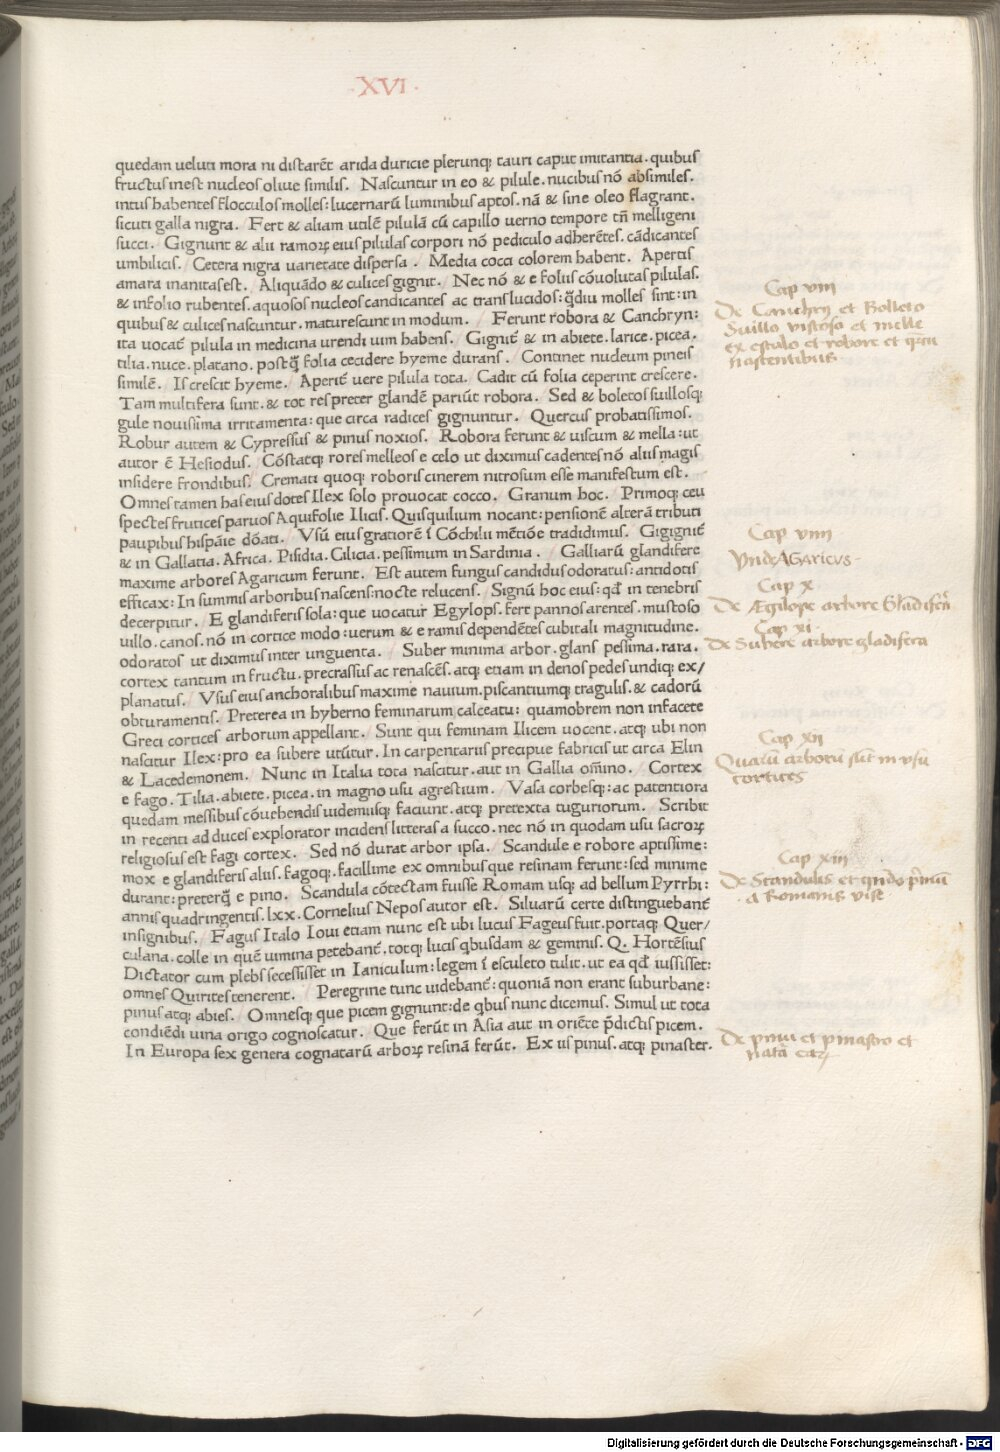 ·XVI·
quedam ueluti mora ni distarēt arida duricie plerunq; tauri caput imitantia. quibus
fructus inest nucleos oliue similis. / Nascuntur in eo & pilule. nucibus nō absimiles.
intus habentes flocculos molles: lucernarū luminibus aptos. nā & sine oleo flagrant.
sicuti galla nigra. / Fert & aliam utilē pilulā cū capillo uerno tempore tn̄ melligeni
succi. / Gignunt & alii ramoꝝ eius pilulas corpori nō pediculo adherētes. cādicantes
umbilicis. / Cetera nigra uarietate dispersa. / Media cocci colorem habent. / Apertis
amara inanitas est. / Aliquādo & culices gignit. / Nec nō & e foliis cōuolutas pilulas.
& infolio rubentes. aquosos nucleos candicantes ac translucidos: q̄diu molles sint: in
quibus & culices nascuntur. maturescunt in modum. / Ferunt robora & Canchryn:
ita vocat̄ pilula in medicina urendi uim habens. / Gignit̄ & in abiete. larice. picea.
tilia. nuce. platano. postq̄ folia cecidere hyeme durans. / Continet nucleum pineis
similē. / Is crescit hyeme. / Aperit̄ uere pilula tota. / Cadit cū folia ceperint crescere.
Tam multifera sunt. & tot res preter glandē pariūt robora. / Sed & boletos suillosq;
gule nouissima irritamenta: que circa radices gignuntur. / Quercus probatissimos.
Robur autem & Cypressus & pinus noxios. / Robora ferunt & uiscum & mella: ut
autor ē Hesiodus. / Cōstatq; rores melleos e celo ut diximus cadentes nō aliis magis
insidere frondibus. / Cremati quoq; roboris cinerem nitrosum esse manifestum est.
Omnes tamen has eius dotes Ilex solo prouocat cocco. / Granum hoc. / Primoq; ceu
spectes frutices paruos Aquifolie Ilicis. Quisquilium nocant: pensionē alterā tributi
paupibus hispāie dōati. / Vsū eius gratiorē ī Cōchilii mētiōe tradidimus. / Gigignit̄
& in Gallatia. Africa. Pisidia. Cilicia. pessimum in Sardinia. / Galliarū glandifere
maxime arbores Agaricum ferunt. / Est autem fungus candidus odoratus: antidotis
efficax: In summis arboribus nascens: nocte relucens. / Signū hoc eius: qd̄ in tenebris
decerpitur. / E glandiferis sola: que uocatur Egylops. fert pannos arentes. mustoso
uillo. canos. nō in cortice modo: uerum & e ramis dependētes cubitali magnitudine.
odoratos ut diximus inter unguenta. / Suber minima arbor. glans pessima. rara.
cortex tantum in fructu. precrassus ac renascēs. atq; etiam in denos pedes undiq; ex/
planatus. / Vsus eius anchoralibus maxime nauium. piscantiumq; tragulis. & cadorū
obturamentis. / Preterea in hyberno feminarum calceatu: quamobrem non infacete
Greci cortices arborum appellant. / Sunt qui feminam Ilicem uocent. atq; ubi non
nascitur Ilex: pro ea subere utūtur. / In carpentariis precipue fabricis ut circa Elin
& Lacedemonem. / Nunc in Italia tota nascitur. aut in Gallia om̄ino. / Cortex
e fago. Tilia. abiete. picea. in magno usu agrestium. / Vasa corbesq: ac patentiora
quedam messibus cōuehendis uidemusq; faciunt. atq; pretexta tuguriorum. / Scribit
in recenti ad duces explorator incidens litteras a succo. nec nō in quodam usu sacroꝝ
religiosus est fagi cortex. / Sed nō durat arbor ipsa. / Scandule e robore aptissime:
mox e glandiferis aliis. fagoq;. facillime ex omnibus que resinam ferunt: sed minime
durant: preterq̄ e pino. / Scandula cōtectam fuisse Romam usq; ad bellum Pyrrhi:
annis quadringentis. lxx. Cornelius Nepos autor est. / Siluarū certe distinguebant̄
insignibus. / Fagus Italo Ioui etiam nunc est ubi lucus Fageus fuit. portaq; Quer/
culana. colle in quē uimina petebant̄. totq; lucis qbusdam & gemmis. Q. Hortēsius
Dictator cum plebs secessisset in Ianiculum: legem ī esculeto tulit. ut ea qd̄ iussisset:
omnes Quirites tenerent. / Peregrine tunc uidebant̄: quoniā non erant suburbane:
pinus atq; abies. / Omnesq; que picem gignunt: de qbus nunc dicemus. Simul ut tota
condiēdi uina origo cognoscatur. / Que ferūt in Asia aut in oriēte p̄dictis picem.
In Europa sex genera cognatarū arboꝝ resinā ferūt. / Ex iis pinus. atq; pinaster.
Cap viii
De Canchryn et Bolleto
Suillo viscoso et melle
ex estalo et robore et
nascentibus
Cap viiii
Vnde AGaricvs-
Cap x
De Ægilope arbore Glādifera
Cap xi·
De Subere arbore gladifera
Cap xii
Quarū arborū sūt in vsu
cortices
Cap xiii
De Scandulis et qndo p̄mū
a Romanis vise
De pinu et pinastro et
natā eaꝝ
Digitalisierung gefördert durch die Deutsche Forschungsgemeinschaft - DFG